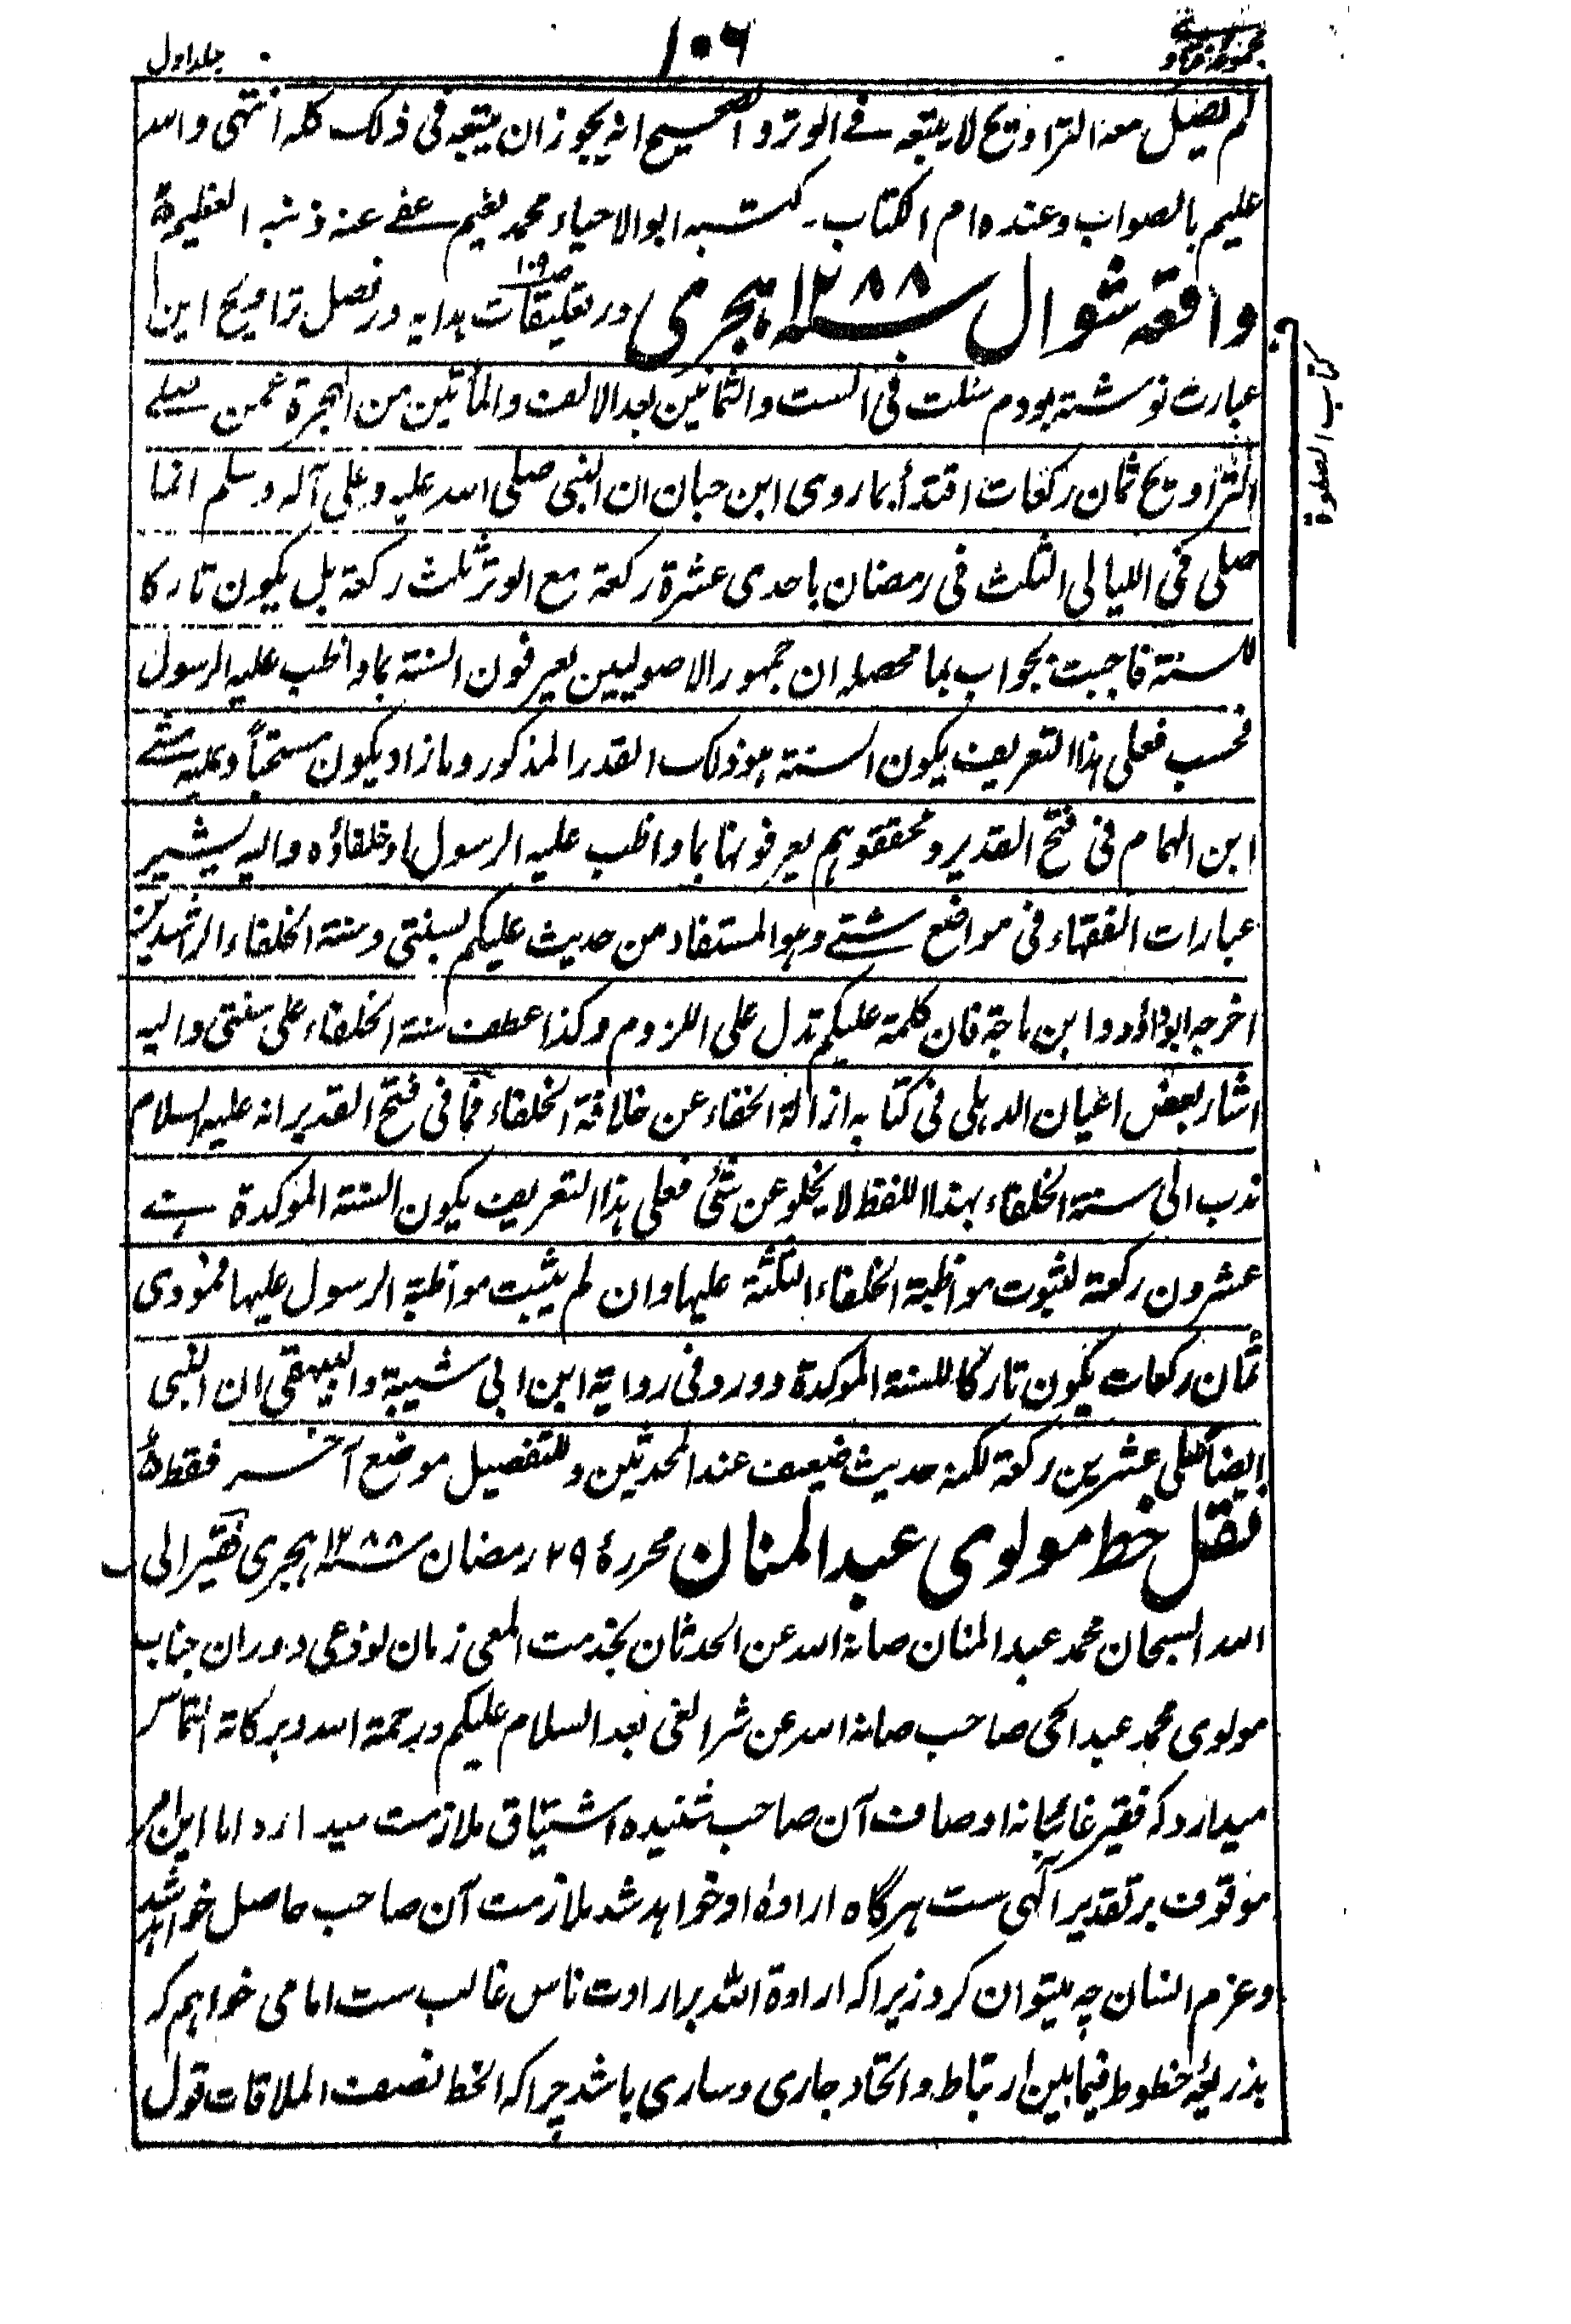 مجموعہ فتاوی
۱۰۶
جلد اول
لم یصل معہ التراویح لا یتبعہ فے الوتر و الصحیح انہ یجوز ان یتبعہ فی ذلک کلہ انتہی واللہ
علیم بالصواب وعندہ ام الکتاب۔ کتبہ ابوالاحیاء محمد نعیم عفے عنہ ذنبہ العظیم
واقعہ شوال ۱۲۸۸ ہجری در تعلیقات ہدایہ در فصل تراویح این
ص۱۰۹
عبارت نوشتہ بودم سئلت فی الست والثمانین بعد الالف والمأتین من الہجرۃ عمن صلے
التراویح ثمان رکعات اقتدأ بما روی ابن حبان ان النبی صلی اللہ علیہ وعلی آلہ وسلم انما
صلی فی اللیالی الثلث فی رمضان باحدی عشرۃ رکعۃ مع الوتر ثلث رکعۃ بل یکون تارکا
للسنۃ فاجبت بجواب بما محصلہ ان جمہور الاصولیین یعرفون السنۃ بما واظب علیہ الرسول
فحسب فعلی ہذا التعریف یکون السنۃ ہو ذلک القدر المذکور وما زاد یکون مستحباً وعلیہ مشے
ابن الہمام فی فتح القدیر و محققوہم یعرفونہا بما واظب علیہ الرسول او خلفاؤہ والیہ یشیر
عبارات الفقہاء فی مواضع شتے وہو المستفاد من حدیث علیکم بسنتی وسنۃ الخلفاء الراشدین
اخرجہ ابوداؤد وابن ماجۃ فان کلمۃ علیکم تدل علی اللزوم وکذا عطف سنۃ الخلفاء علی سنتی والیہ
اشار بعض اعیان الدہلی فی کتابہ ازالۃ الخفاء عن خلافۃ الخلفاء فما فی فتح القدیر انہ علیہ السلام
ندب الی سنۃ الخلفاء بہذا اللفظ لا یخلو عن شئ فعلی ہذا التعریف یکون السنۃ الموکدۃ ہے
عشرون رکعۃ لثبوت مواظبۃ الخلفاء الثلثۃ علیہا وان لم یثبت مواظبۃ الرسول علیہا فمؤدی
ثمان رکعات یکون تارکا للسنۃ الموکدۃ وورد فی روایۃ ابن ابی شیبۃ والبیہقی ان النبی
ایضا صلی عشرین رکعۃ لکنہ حدیث ضعیف عند المحدثین وللتفصیل موضع آخر فقط
نقل خط مولوی عبدالمنان محررہ ۲۹ رمضان ۱۲۸۸ ہجری فقیر الی
اللہ السبحان محمد عبدالمنان صانہ اللہ عن الحدثان بخدمت المعی زمان لوذعی دوران جناب
مولوی محمد عبدالحی صاحب صانہ اللہ عن شر الغی بعد السلام علیکم ورحمۃ اللہ وبرکاتہ التماس
میدارد کہ فقیر غائبانہ اوصاف آن صاحب شنیدہ اشتیاق ملازمت میدارد اما این امر
موقوف بر تقدیر الٰہی ست ہرگاہ ارادۂ او خواہد شد ملازمت آن صاحب حاصل خواہد شد
وعزم النسان چہ میتوان کرد زیراکہ ارادۃ اللہ بر ارادت ناس غالب ست اما می خواہم کہ
بذریعۂ خطوط فیمابین ارتباط و اتحاد جاری وساری باشد چراکہ الخط نصف الملاقات قول
کتاب الصلوۃ